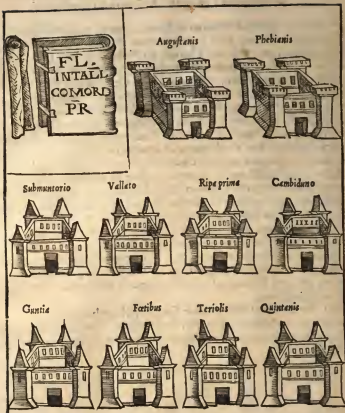 FL.
INTALL
COMORD
PR
Augustanis Phebianis
Submuntorio Vallato Ripa prima Cambiduno
Guntia Fœtibus Teriolis Quintanis